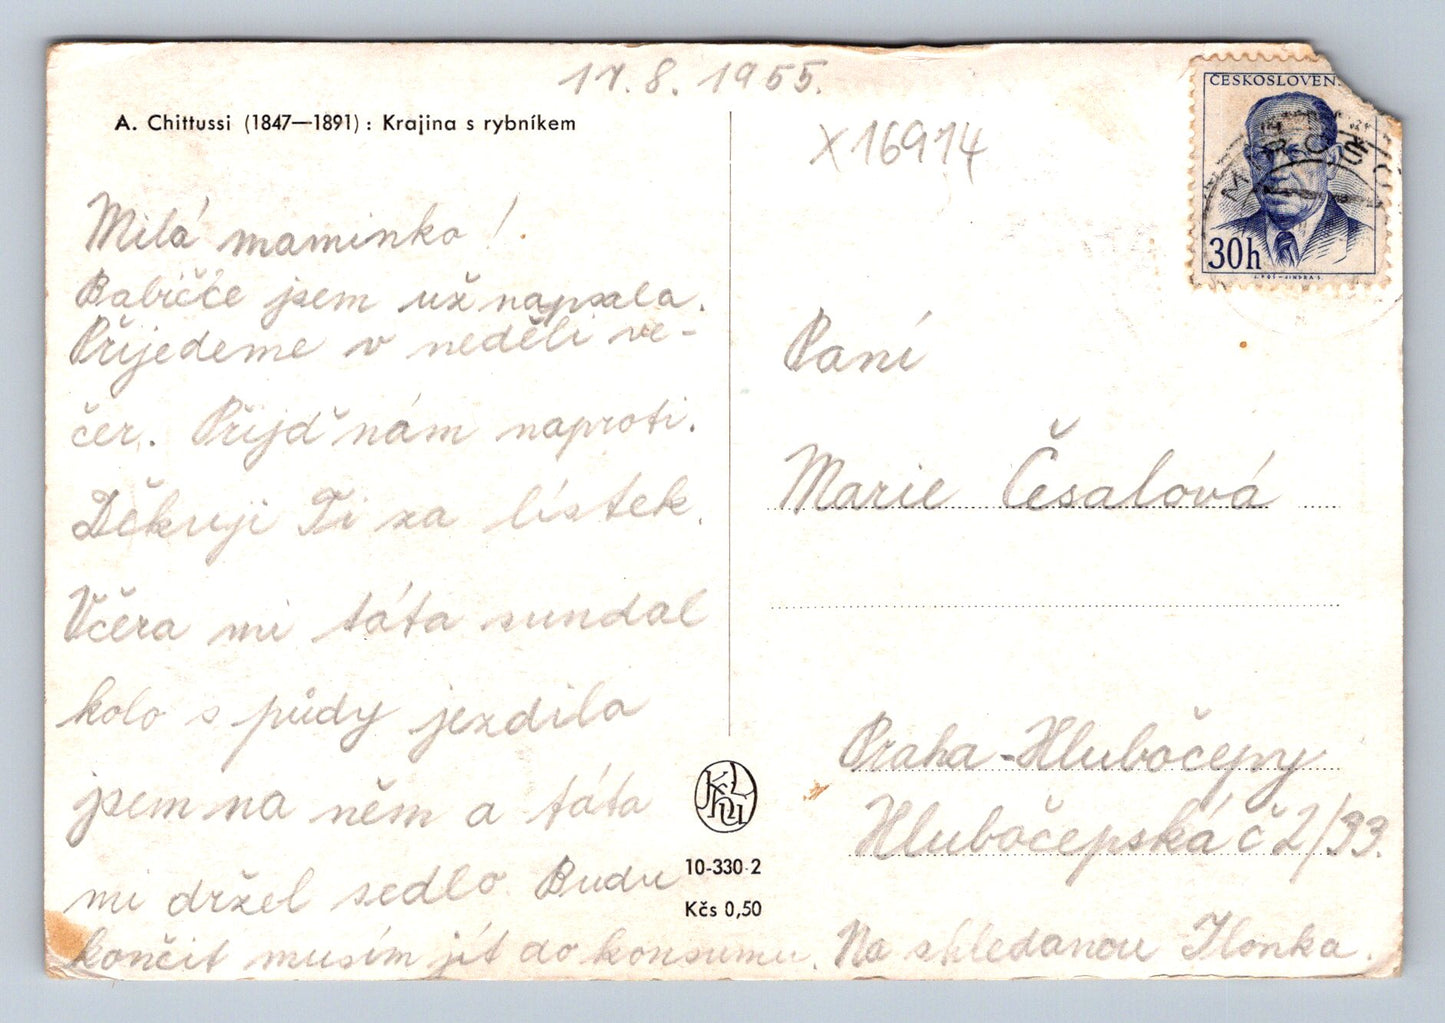 17.8.1955.
A. Chittussi (1847—1891) : Krajina s rybníkem
X16914
ČESKOSLOVEN
30h
Milá maminko!
Babičče jsem už napsala.
Přijedeme v neděli ve-
čer. Přijď nám naproti.
Děkuji Ti za lístek.
Včera mi táta sundal
kolo s půdy jezdila
jsem na něm a táta
mi držel sedlo. Budu
končit musím jít do konsumu. Na shledanou Ilonka.
10-330-2
Kčs 0,50
Paní
Marie Česalová
Praha-Hlubočepy
Hlubočepská č 2/33.